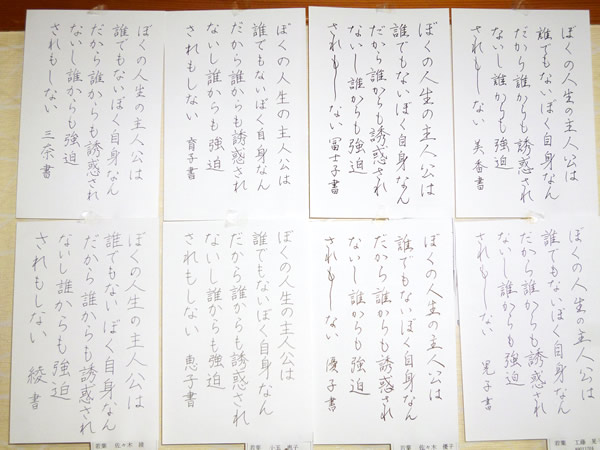 ぼくの人生の主人公は
誰でもないぼく自身なん
だから誰からも誘惑され
ないし誰からも強迫
されもしない 美香書
ぼくの人生の主人公は
誰でもないぼく自身なん
だから誰からも誘惑され
ないし誰からも強迫
されもしない 冨士子書
ぼくの人生の主人公は
誰でもないぼく自身なん
だから誰からも誘惑され
ないし誰からも強迫
されもしない 育子書
ぼくの人生の主人公は
誰でもないぼく自身なん
だから誰からも誘惑され
ないし誰からも強迫
されもしない 三奈書
ぼくの人生の主人公は
誰でもないぼく自身なん
だから誰からも誘惑され
ないし誰からも強迫
されもしない 晃子書
若葉 工藤
ぼくの人生の主人公は
誰でもないぼく自身なん
だから誰からも誘惑され
ないし誰からも強迫
されもしない 優子書
若葉 佐々木 優子
ぼくの人生の主人公は
誰でもないぼく自身なん
だから誰からも誘惑され
ないし誰からも強迫
されもしない 恵子書
若葉 恵子
ぼくの人生の主人公は
誰でもないぼく自身なん
だから誰からも誘惑され
ないし誰からも強迫
されもしない 綾書
若葉 佐々木 綾